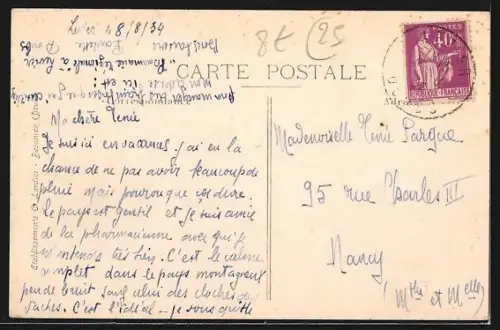 18/8/34
8€ 25
CARTE POSTALE
Correspondance
POSTES
40c
RÉPUBLIQUE FRANÇAISE
Ma chère Ténie
Je suis ici en vacances. j'ai eu la
chance de ne pas avoir beaucoup de
pluie mais pourvu que ça dure.
Le pays est gentil et je suis amie
de la pharmacienne avec qui je
m'entends très bien. C'est le calme
complet dans le pays montagneux
peu de bruit sauf celui des cloches des
vaches. C'est l'idéal — je vous quitte
Mademoiselle Ténie Pargue
95 rue Charles III
Nancy
(Mthe et Mlle)
Etablissements C. Lardier - Besançon (Doubs)